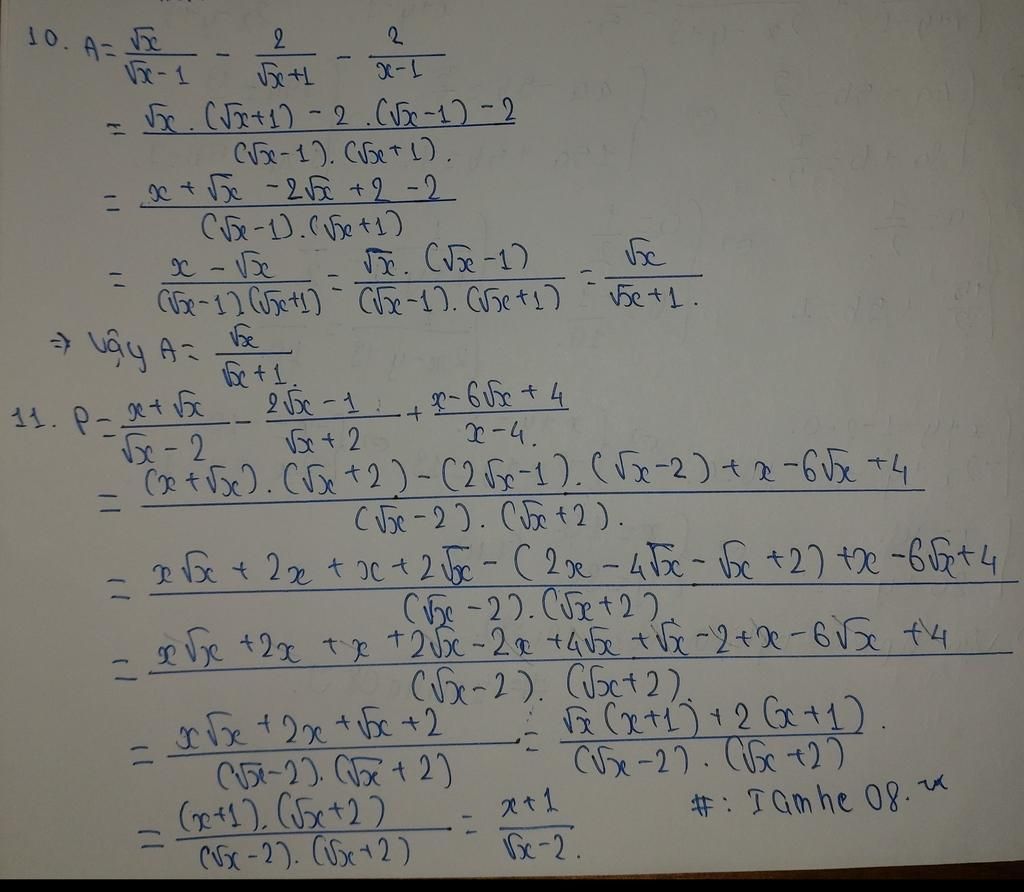 10. A = √x/(√x - 1) - 2/(√x + 1) - 2/(x - 1)
= (√x . (√x + 1) - 2 . (√x - 1) - 2)/((√x - 1) . (√x + 1).)
= (x + √x - 2√x + 2 - 2)/((√x - 1) . (√x + 1))
= (x - √x)/((√x - 1)(√x + 1)) = (√x . (√x - 1))/((√x - 1) . (√x + 1)) = √x/(√x + 1.)
⇒ Vậy A = √x/(√x + 1.)
11. P = (x + √x)/(√x - 2) - (2√x - 1)/(√x + 2) + (x - 6√x + 4)/(x - 4.)
= ((x + √x) . (√x + 2) - (2√x - 1) . (√x - 2) + x - 6√x + 4)/((√x - 2) . (√x + 2).)
= (x√x + 2x + x + 2√x - (2x - 4√x - √x + 2) + x - 6√x + 4)/((√x - 2) . (√x + 2))
= (x√x + 2x + x + 2√x - 2x + 4√x + √x - 2 + x - 6√x + 4)/((√x - 2) . (√x + 2).)
= (x√x + 2x + √x + 2)/((√x - 2) . (√x + 2)) = (√x (x + 1) + 2 (x + 1).)/((√x - 2) . (√x + 2))
= ((x + 1) . (√x + 2))/((√x - 2) . (√x + 2)) = (x + 1)/(√x - 2.)
#: Iamhe 08.